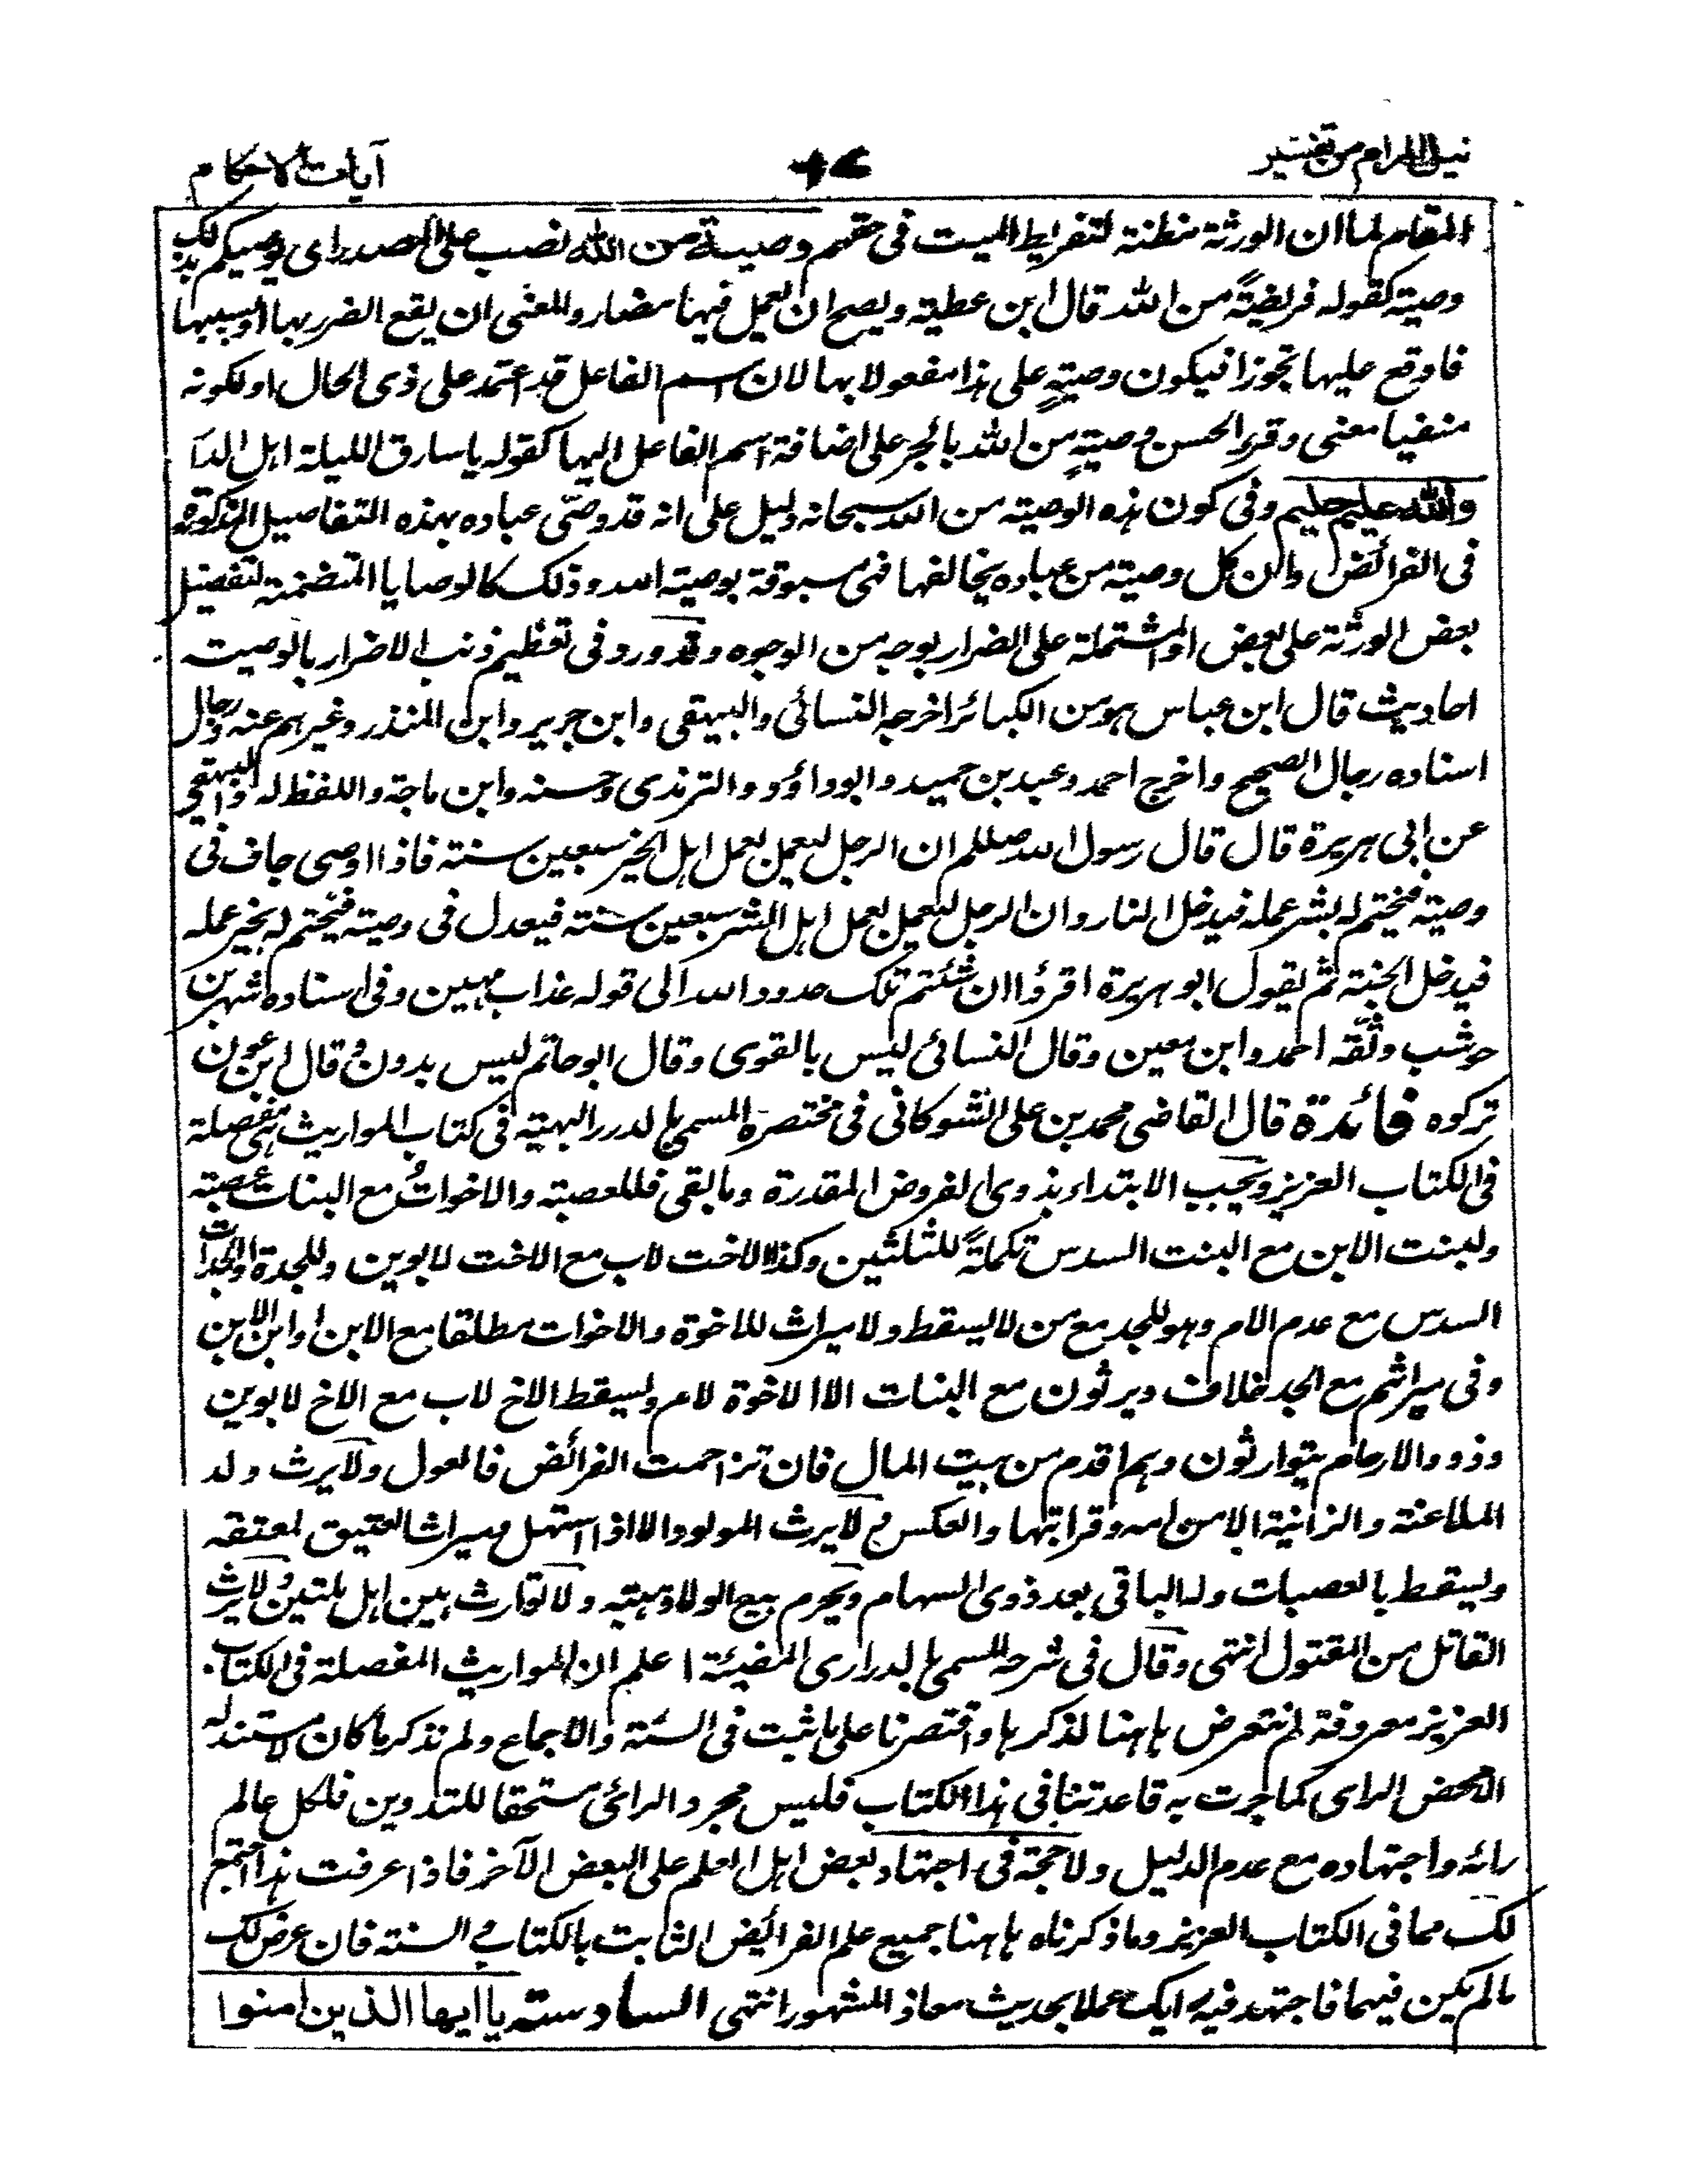 نيل المرام من تفسير
آيات الاحكام
المقام لما ان الورثة مظنة لتفريط الميت فى حقهم وصية من الله نصب على المصدر اى يوصيكم بذلك
وصية كقوله فريضةً من الله قال ابن عطية ويصح ان يعمل فيها مضار والمعنى ان يقع الضرر بها او بسببها
فاوقع عليها تجوزا فيكون وصيةٍ على هذا مفعولا بها لان اسم الفاعل قد اعتمد على ذى الحال او لكونه
منفيا معنى وقرء الحسن وصيةٍ من الله بالجر على اضافة اسم الفاعل اليها كقوله يا سارق الليلة اهل الدار
والله عليم حليم وفى كون هذه الوصية من الله سبحانه دليل على انه قد وصّى عباده بهذه التفاصيل المذكورة
فى الفرائض وان كل وصية من عباده يخالفها فهى مسبوقة بوصية الله وذلك كالوصايا المتضمنة لتفضيل
بعض الورثة على بعض او المشتملة على الضرار بوجه من الوجوه وقد ورد فى تعظيم ذنب الاضرار بالوصية
احاديث قال ابن عباس هو من الكبائر اخرجه النسائى والبيهقى وابن جرير وابن المنذر وغيرهم عنه ورجال
اسناده رجال الصحيح واخرج احمد وعبد بن حميد وابوداؤد والترمذى وحسنه وابن ماجة واللفظ له والبيهقى
عن ابى هريرة قال قال رسول الله صللم ان الرجل ليعمل بعمل اهل الخير سبعين سنة فاذا اوصى حاف فى
وصيته فيختم له بشر عمله فيدخل النار وان الرجل ليعمل بعمل اهل الشر سبعين سنة فيعدل فى وصيته فيختم له بخير عمله
فيدخل الجنة ثم يقول ابو هريرة اقرؤا ان شئتم تلك حدود الله الى قوله عذاب مهين وفى اسناده شهر بن
حوشب وثّقه احمد وابن معين وقال النسائى ليس بالقوى وقال ابو حاتم ليس بدون وقال ابن عون
تركوه فائدة قال القاضى محمد بن على الشوكانى فى مختصره المسمى بالدرر البهية فى كتاب المواريث هى مفصلة
فى الكتاب العزيز ويجب الابتداء بذوى الفروض المقدرة وما بقى فللعصبة والاخواتُ مع البنات عصبة
ولبنت الابن مع البنت السدس تكملةً للثلثين وكذا الاخت لاب مع الاخت لابوين وللجدة والجدات
السدس مع عدم الام وهو للجد مع من لا يسقط ولا ميراث للاخوة والاخوات مطلقا مع الابن او ابن الابن
وفى ميراثهم مع الجد خلاف ويرثون مع البنات الا الاخوة لام ويسقط الاخ لاب مع الاخ لابوين
وذوو الارحام يتوارثون وهم اقدم من بيت المال فان تزاحمت الفرائض فالعول ولا يرث ولد
الملاعنة والزانية الا من امه وقرابتها والعكس ولا يرث المولود الا اذا استهل وميراث العتيق لمعتقه
ويسقط بالعصبات وله الباقى بعد ذوى السهام ويحرم بيع الولاء وهبته ولا توارث بين اهل ملتين ولا يرث
القاتل من المقتول انتهى وقال فى شرحه المسمى بالدرارى المضيئة اعلم ان المواريث المفصلة فى الكتاب
العزيز معروفة لم نتعرض هاهنا لذكرها واقتصرنا على ما ثبت فى السنة والاجماع ولم نذكر ما كان لا مستند له
الا محض الراى كما جرت به قاعدتنا فى هذا الكتاب فليس مجرد الرائى مستحقا للتدوين فلكل عالم
رائه واجتهاده مع عدم الدليل ولا حجة فى اجتهاد بعض اهل العلم على البعض الآخر فاذا عرفت هذا اجتمع
لك مما فى الكتاب العزيز وما ذكرناه هاهنا جميع علم الفرائض الثابت بالكتاب والسنة فان عرض لك
مالم يكن فيهما فاجتهد فيه رايك عملا بحديث معاذ المشهور انتهى السادسة يا ايها الذين امنوا